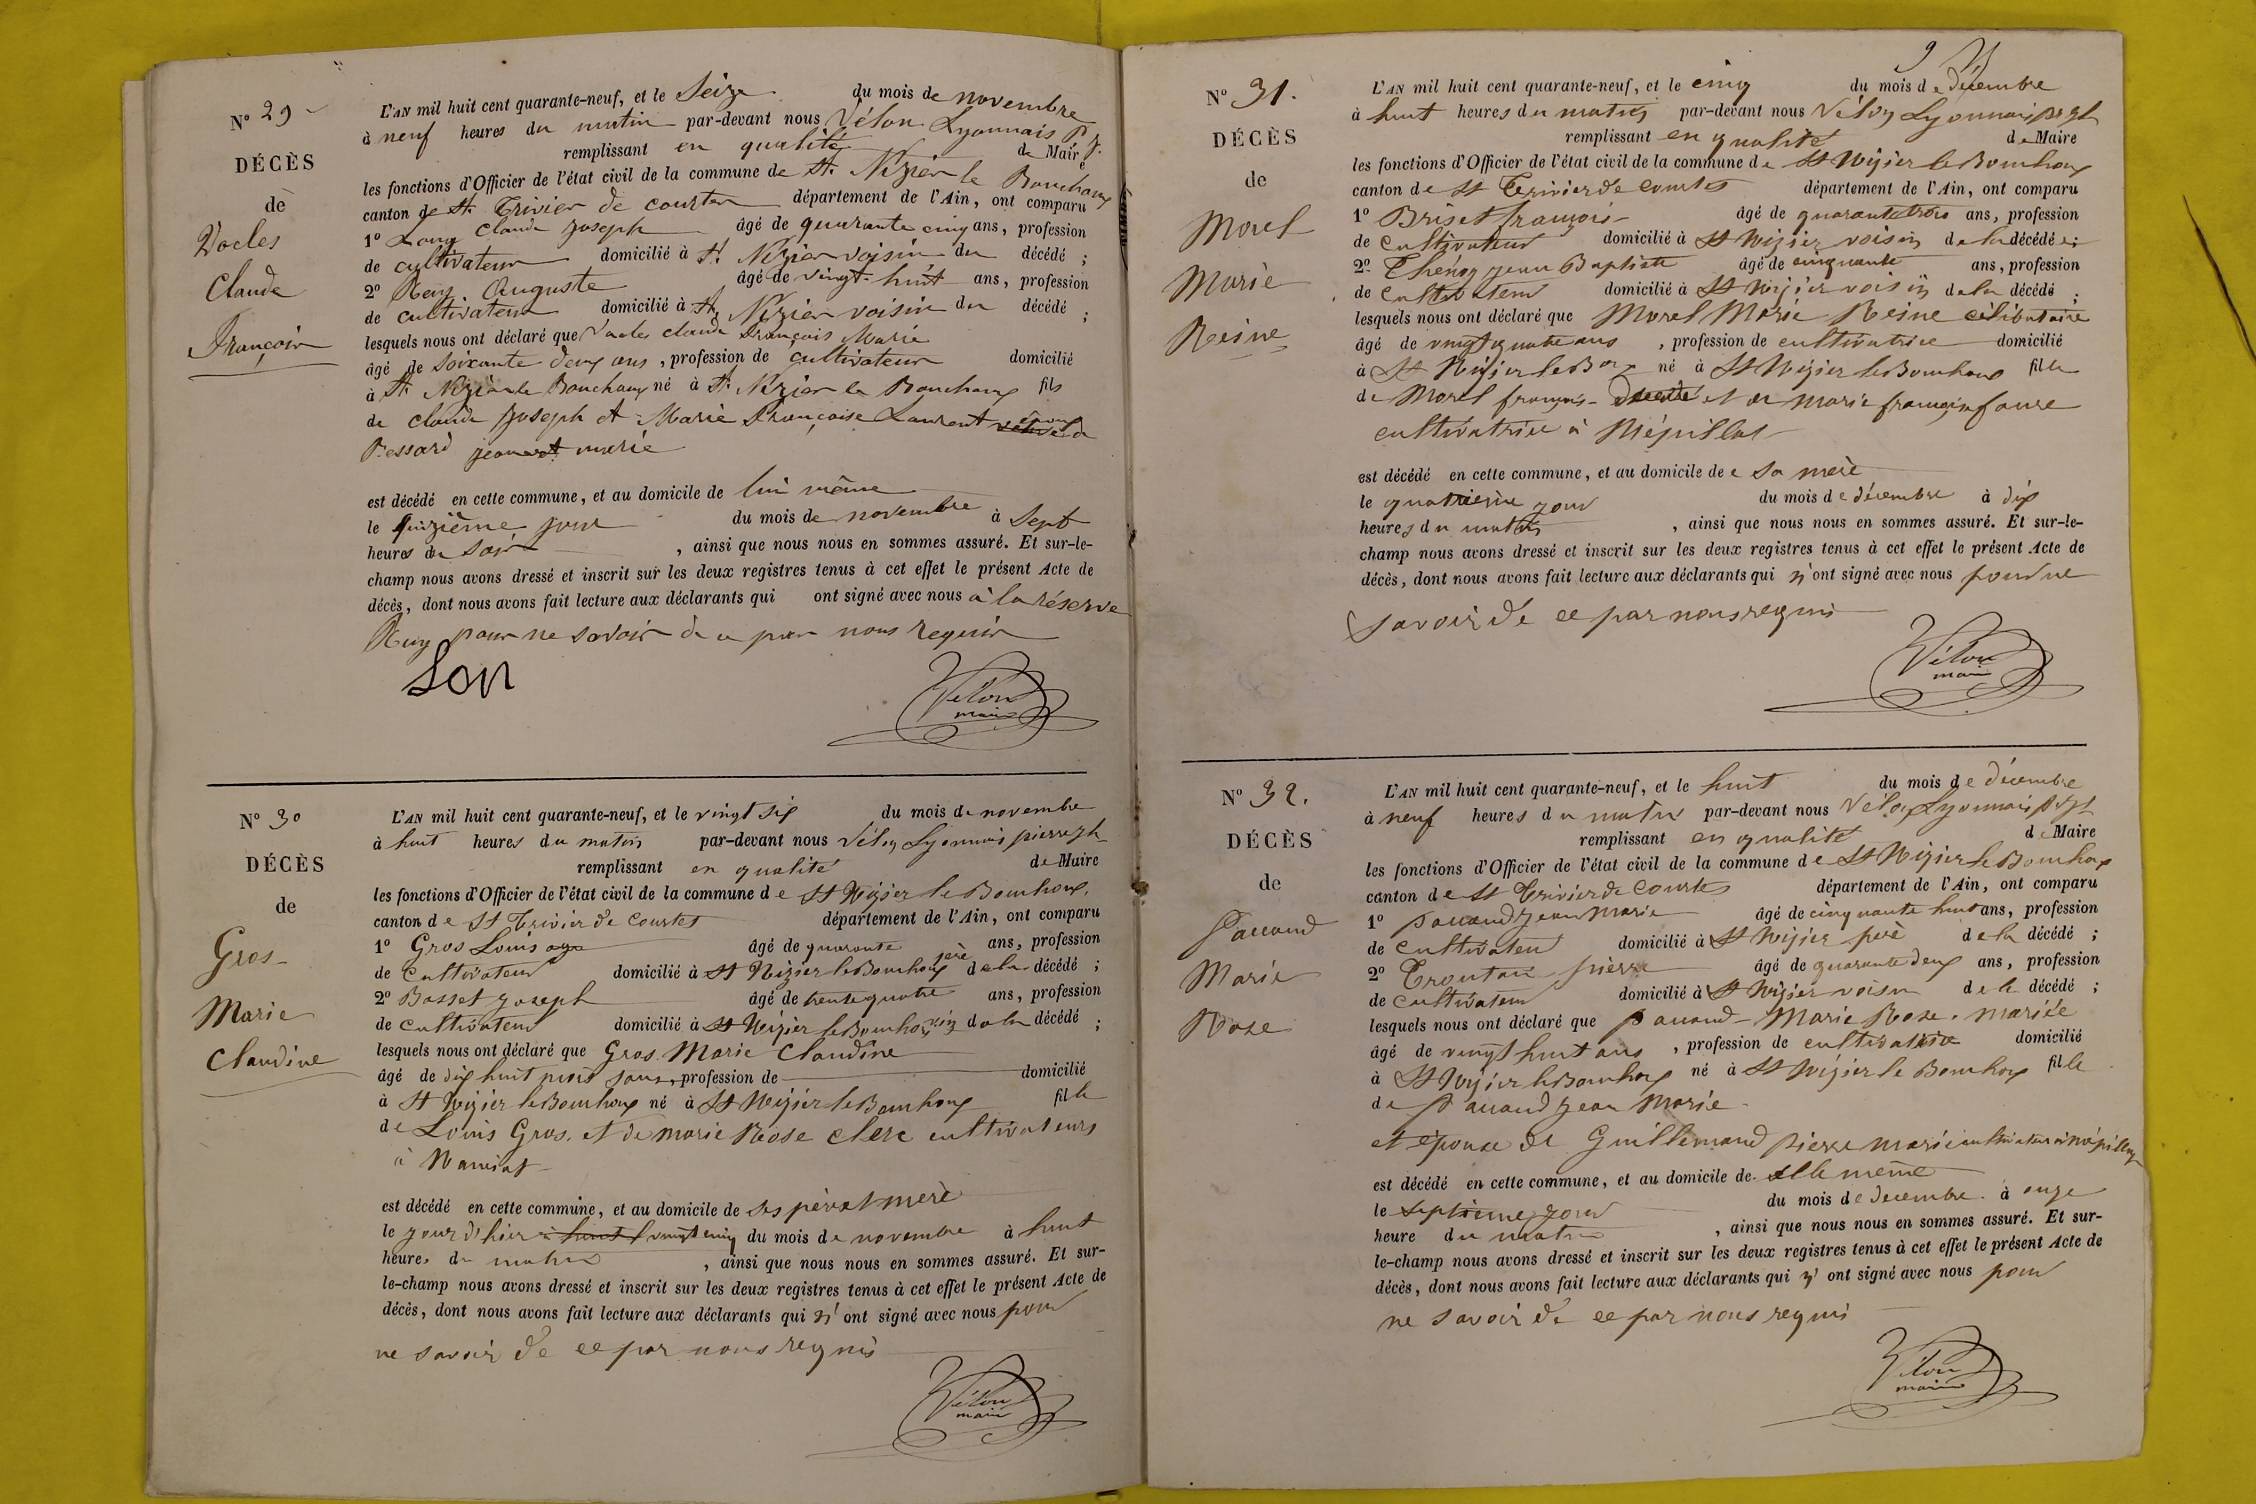 N° 29
DÉCÈS
de
Vocles
Claude
François
L'AN mil huit cent quarante-neuf, et le Seize du mois de novembre
à neuf heures du matin par-devant nous Vélon Lyonnais P. J.
remplissant en qualité de Maire
les fonctions d'Officier de l'état civil de la commune de St. Nizier le Bouchoux
canton de St. Trivier de courtes département de l'Ain, ont comparu
1° Long Claude Joseph âgé de quarante cinq ans, profession
de cultivateur domicilié à St. Nizier voisin du décédé ;
2° Rey Auguste âgé de vingt-huit ans, profession
de cultivateur domicilié à St. Nizier voisin du décédé ;
lesquels nous ont déclaré que Vocles claude François Marie
âgé de soixante deux ans, profession de cultivateur domicilié
à St. Nizier le Bouchoux né à St. Nizier le Bouchoux fils
de claude Joseph et Marie Françoise Laurent époux de
Pessard jeanne marie
est décédé en cette commune, et au domicile de lui même
le quinzième jour du mois de novembre à Sept
heures du soir , ainsi que nous nous en sommes assuré. Et sur-le-
champ nous avons dressé et inscrit sur les deux registres tenus à cet effet le présent Acte de
décès, dont nous avons fait lecture aux déclarants qui ont signé avec nous à la réserve
Rey pour ne savoir de ce par nous requis
Lon
Vélon
maire
N° 30
DÉCÈS
de
Gros
Marie
Claudine
L'AN mil huit cent quarante-neuf, et le vingt six du mois de novembre
à huit heures du matin par-devant nous Vélon Lyonnais pierre jh
remplissant en qualité de Maire
les fonctions d'Officier de l'état civil de la commune de St Nizier le Bouchoux
canton de St Trivier de Courtes département de l'Ain, ont comparu
1° Gros Louis âgé de quarante ans, profession
de cultivateur domicilié à St Nizier le Bouchoux père de la décédé ;
2° Basset Joseph âgé de trente quatre ans, profession
de cultivateur domicilié à St Nizier le Bouchoux de la décédé ;
lesquels nous ont déclaré que Gros Marie Claudine
âgé de dix huit mois sans, profession de domicilié
à St Nizier le Bouchoux né à St Nizier le Bouchoux fille
de Louis Gros et de marie Rose clerc cultivateurs
à
est décédé en cette commune, et au domicile de ses père et mère
le jour d'hier vingt cinq du mois de novembre à huit
heures du matin , ainsi que nous nous en sommes assuré. Et sur-
le-champ nous avons dressé et inscrit sur les deux registres tenus à cet effet le présent Acte de
décès, dont nous avons fait lecture aux déclarants qui n'ont signé avec nous pour
ne savoir de ce par nous requis
Vélon
maire
N° 31.
DÉCÈS
de
Morel
Marie
Reine
L'AN mil huit cent quarante-neuf, et le cinq du mois de Décembre
à huit heures du matin par-devant nous Vélon Lyonnais
remplissant en qualité de Maire
les fonctions d'Officier de l'état civil de la commune de St Nizier le Bouchoux
canton de St Trivier de Courtes département de l'Ain, ont comparu
1° Briset françois âgé de quarante trois ans, profession
de cultivateur domicilié à St Nizier voisin de la décédée ;
2° Thénoz Jean Baptiste âgé de cinquante ans, profession
de cultivateur domicilié à St Nizier voisin de la décédé ;
lesquels nous ont déclaré que Morel Marie Reine célibataire
âgé de vingt quatre ans , profession de cultivatrice domicilié
à St Nizier le Box né à St Nizier le Bouchoux fille
de Morel françois décédé et de marie françoise faure
cultivatrice à Mépillat
est décédé en cette commune, et au domicile de sa mère
le quatrième jour du mois de décembre à dix
heures du matin , ainsi que nous nous en sommes assuré. Et sur-le-
champ nous avons dressé et inscrit sur les deux registres tenus à cet effet le présent Acte de
décès, dont nous avons fait lecture aux déclarants qui n'ont signé avec nous pour ne
savoir de ce par nous requis
Vélon
maire
N° 32.
DÉCÈS
de
Pauand
Marie
Rose
L'AN mil huit cent quarante-neuf, et le huit du mois de décembre
à neuf heures du matin par-devant nous Vélon Lyonnais
remplissant en qualité de Maire
les fonctions d'Officier de l'état civil de la commune de St Nizier le Bouchoux
canton de St Trivier de Courtes département de l'Ain, ont comparu
1° Pauand Jean Marie âgé de cinquante huit ans, profession
de cultivateur domicilié à St Nizier père de la décédé ;
2° Troutan pierre âgé de quarante deux ans, profession
de cultivateur domicilié à St Nizier voisin de la décédé ;
lesquels nous ont déclaré que Pauand Marie Rose mariée
âgé de vingt huit ans , profession de cultivatrice domicilié
à St Nizier le Bouchoux né à St Nizier le Bouchoux fille
de Pauand Jean Marie
et épouse de Guillemaud pierre marie cultivateur à Mépillat
est décédé en cette commune, et au domicile de elle même
le septième jour du mois de decembre à onze
heure du matin , ainsi que nous nous en sommes assuré. Et sur-
le-champ nous avons dressé et inscrit sur les deux registres tenus à cet effet le présent Acte de
décès, dont nous avons fait lecture aux déclarants qui n'ont signé avec nous pour
ne savoir de ce par nous requis
Vélon
maire